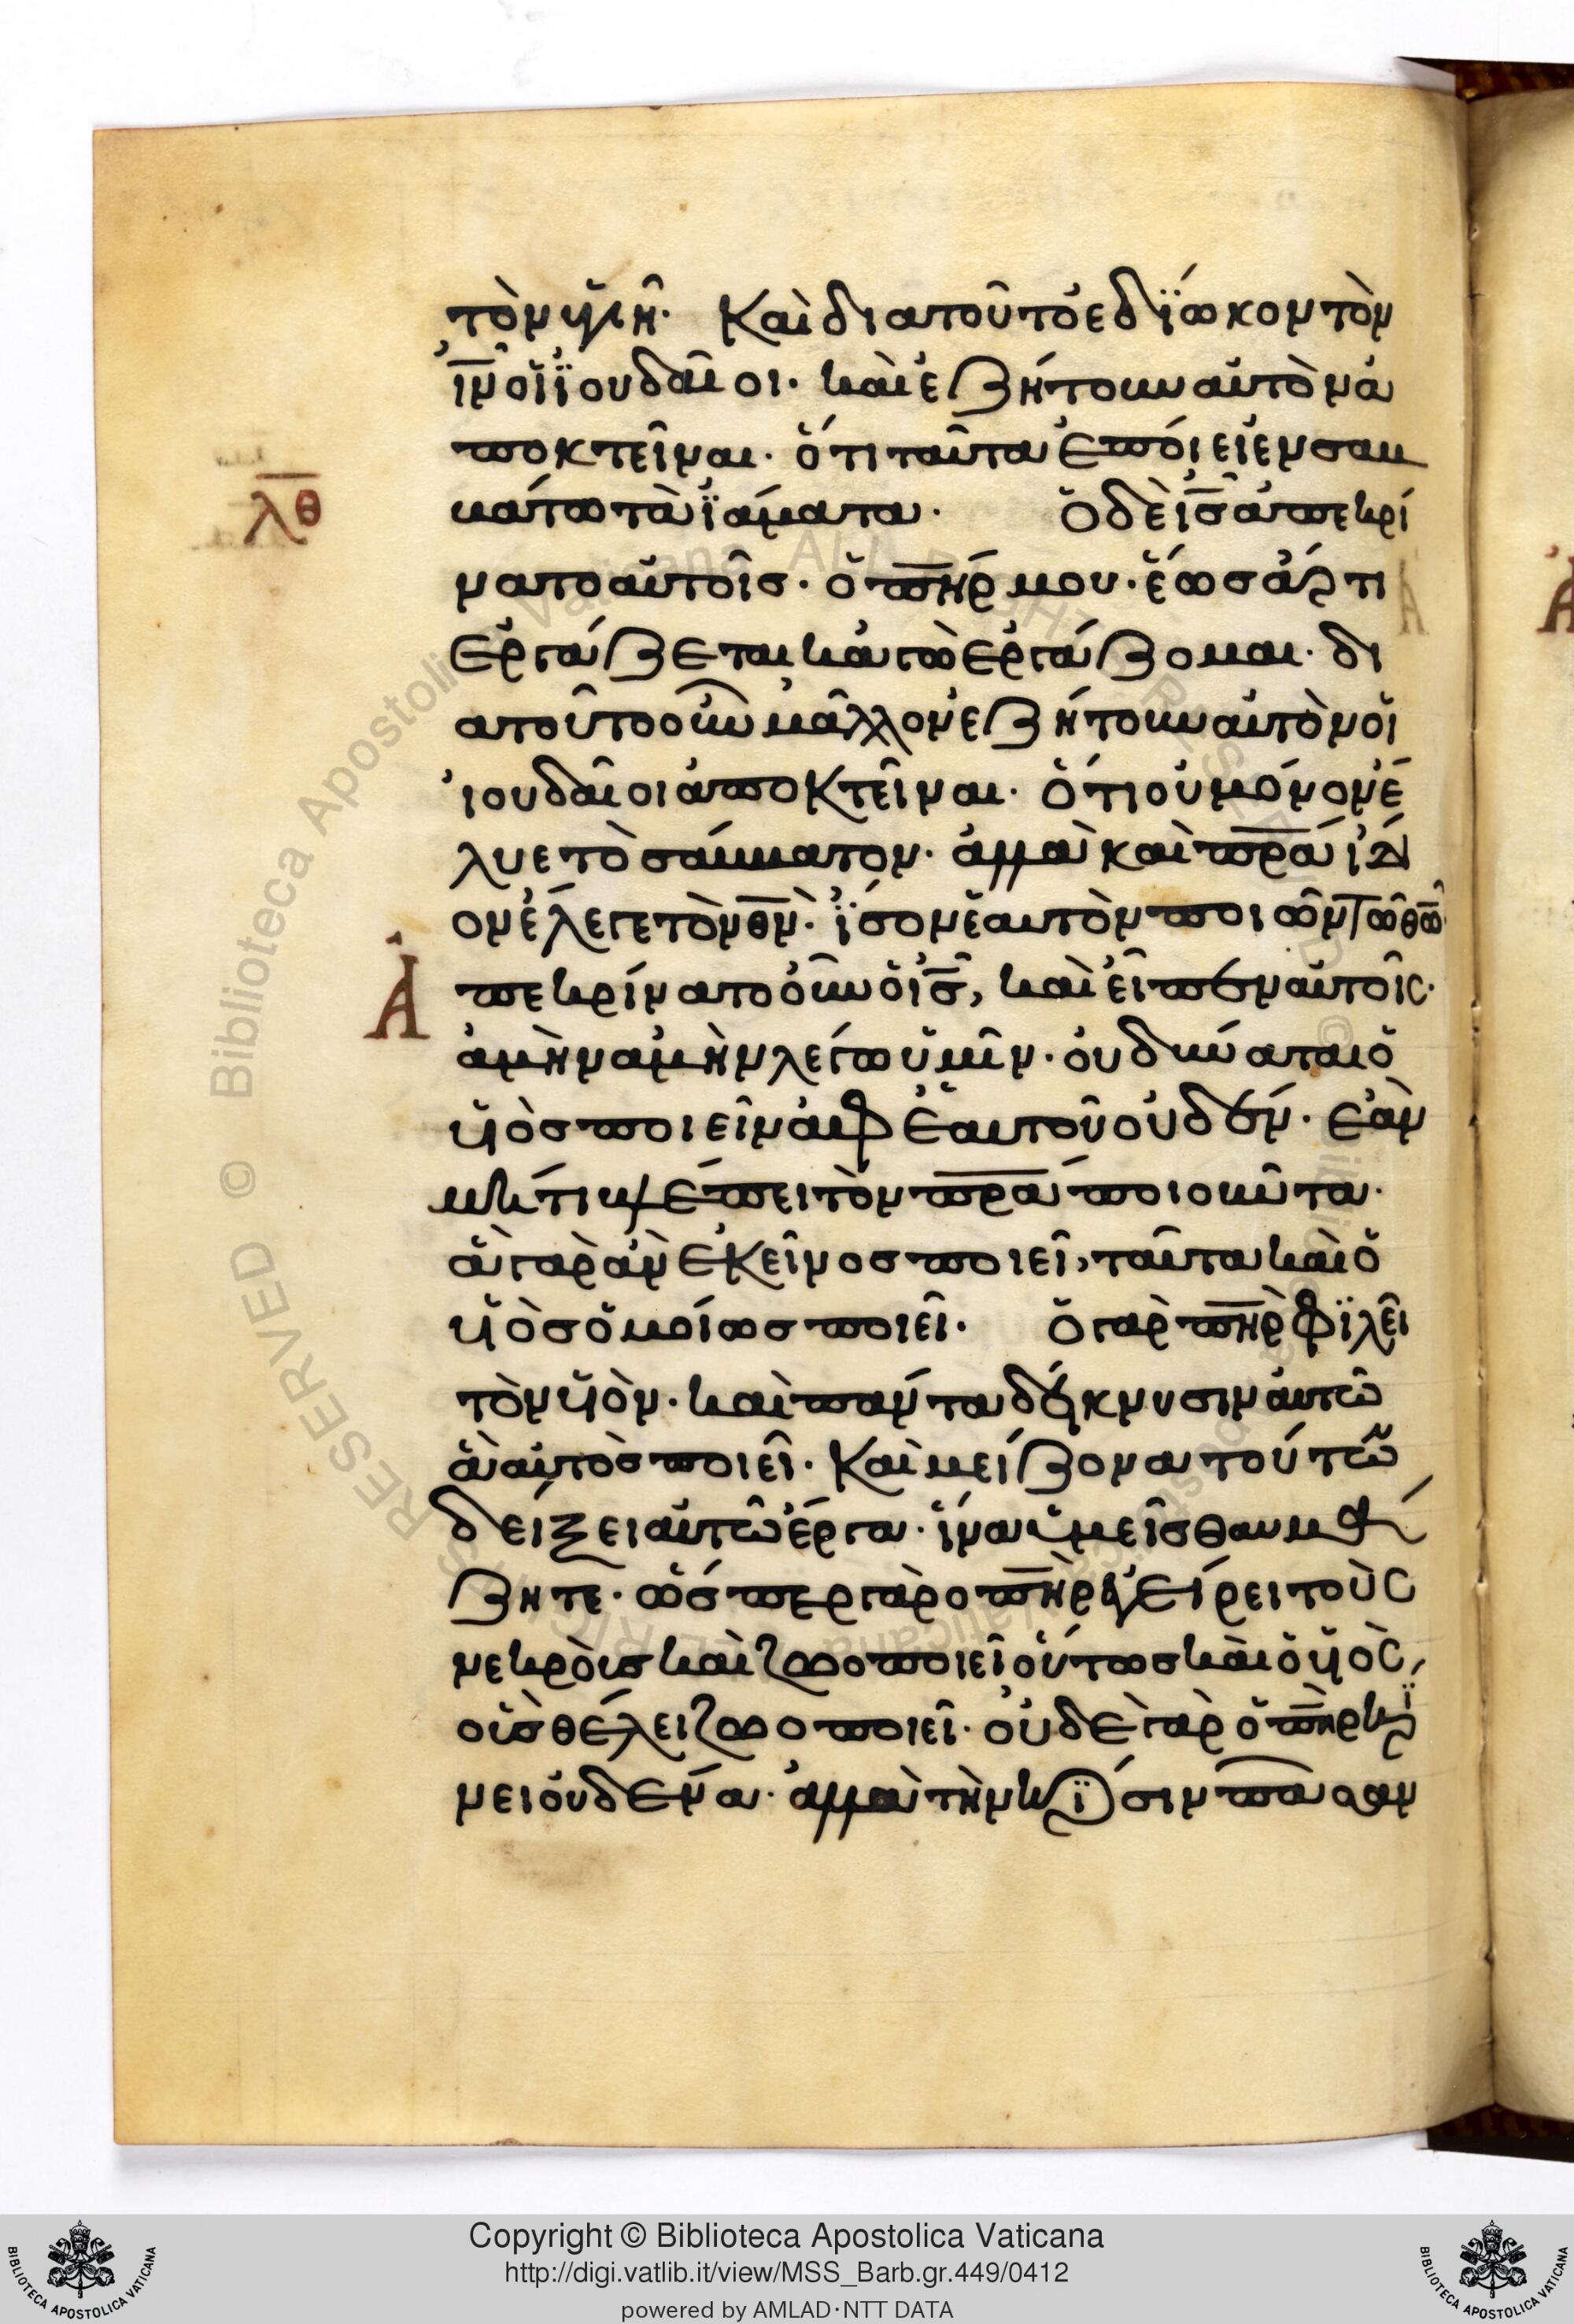 τὸν ὑγιῆ· Καὶ διατοῦτο ἐδίωκον τὸν
ι̅ν̅ οἱ ἰουδαῖοι· καὶ ἐζήτουν αὐτὸν ἀ
ποκτεῖναι· ὅτι ταῦτα ἐποίει ἐν σαβ
βάτω τὰ ϊάματα· Ὁ δὲ ι̅σ̅ ἀπεκρί
λ̅θ̅
νατο αὐτοῖς· ὁ π̅η̅ρ̅ μου· ἕως ἄρτι
ἐργάζεται κἀγὼ ἐργάζομαι· δι
ατοῦτο οὖν μᾶλλον ἐζήτουν αὐτὸν οἱ
ἰουδαῖοι ἀποκτεῖναι· ὅτι οὐ μόνον ἔ
λυε τὸ σάββατον· ἀλλὰ καὶ π̅ρ̅α̅ ἴδι
ον ἔλεγε τὸν θ̅ν̅· ἴσον ἑαυτὸν ποιῶν τῶ θ̅ω̅· ἀ
Ἀ
πεκρίνατο οὖν ὁ ι̅σ̅, καὶ εἶπεν αὐτοῖς·
ἀμὴν ἀμὴν λέγω ὑμῖν· οὐ δύναται ὁ
υἱὸς ποιεῖν ἀφ ἑαυτοῦ οὐδέν· ἐὰν
μή τι βλέπει τὸν π̅ρ̅α̅ ποιοῦντα·
ἃ γὰρ ἂν ἐκεῖνος ποιεῖ, ταῦτα καὶ ὁ
υἱὸς ὁμοίως ποιεῖ· Ὁ γὰρ π̅η̅ρ̅ φιλεῖ
τὸν υἱὸν· καὶ πάντα δείκνυσιν αὐτῶ
ἃ αὐτὸς ποιεῖ· Καὶ μείζονα τούτων
δείξει αὐτῶ ἔργα· ἵνα ὑμεῖς θαυμά
ζητε· ὥσπερ γὰρ ο π̅η̅ρ̅ ἐγείρει τοὺς
νεκροὺς καὶ ζωοποιεῖ οὕτως καὶ ὁ υἱὸς,
οὓς θέλει ζωοποιεῖ· οὐδὲ γὰρ ὁ π̅η̅ρ̅ κρί
νει οὐδένα· ἀλλὰ τὴν κρίσιν πᾶσαν
Copyright © Biblioteca Apostolica Vaticana
http://digi.vatlib.it/view/MSS_Barb.gr.449/0412
powered by AMLAD·NTT DATA
BIBLIOTECA APOSTOLICA VATICANA
BIBLIOTECA APOSTOLICA VATICANA